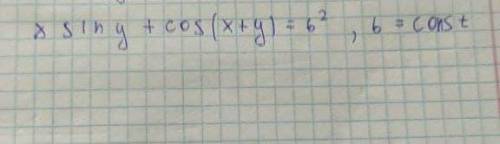 x sin y + cos(x+y) = b², b = const